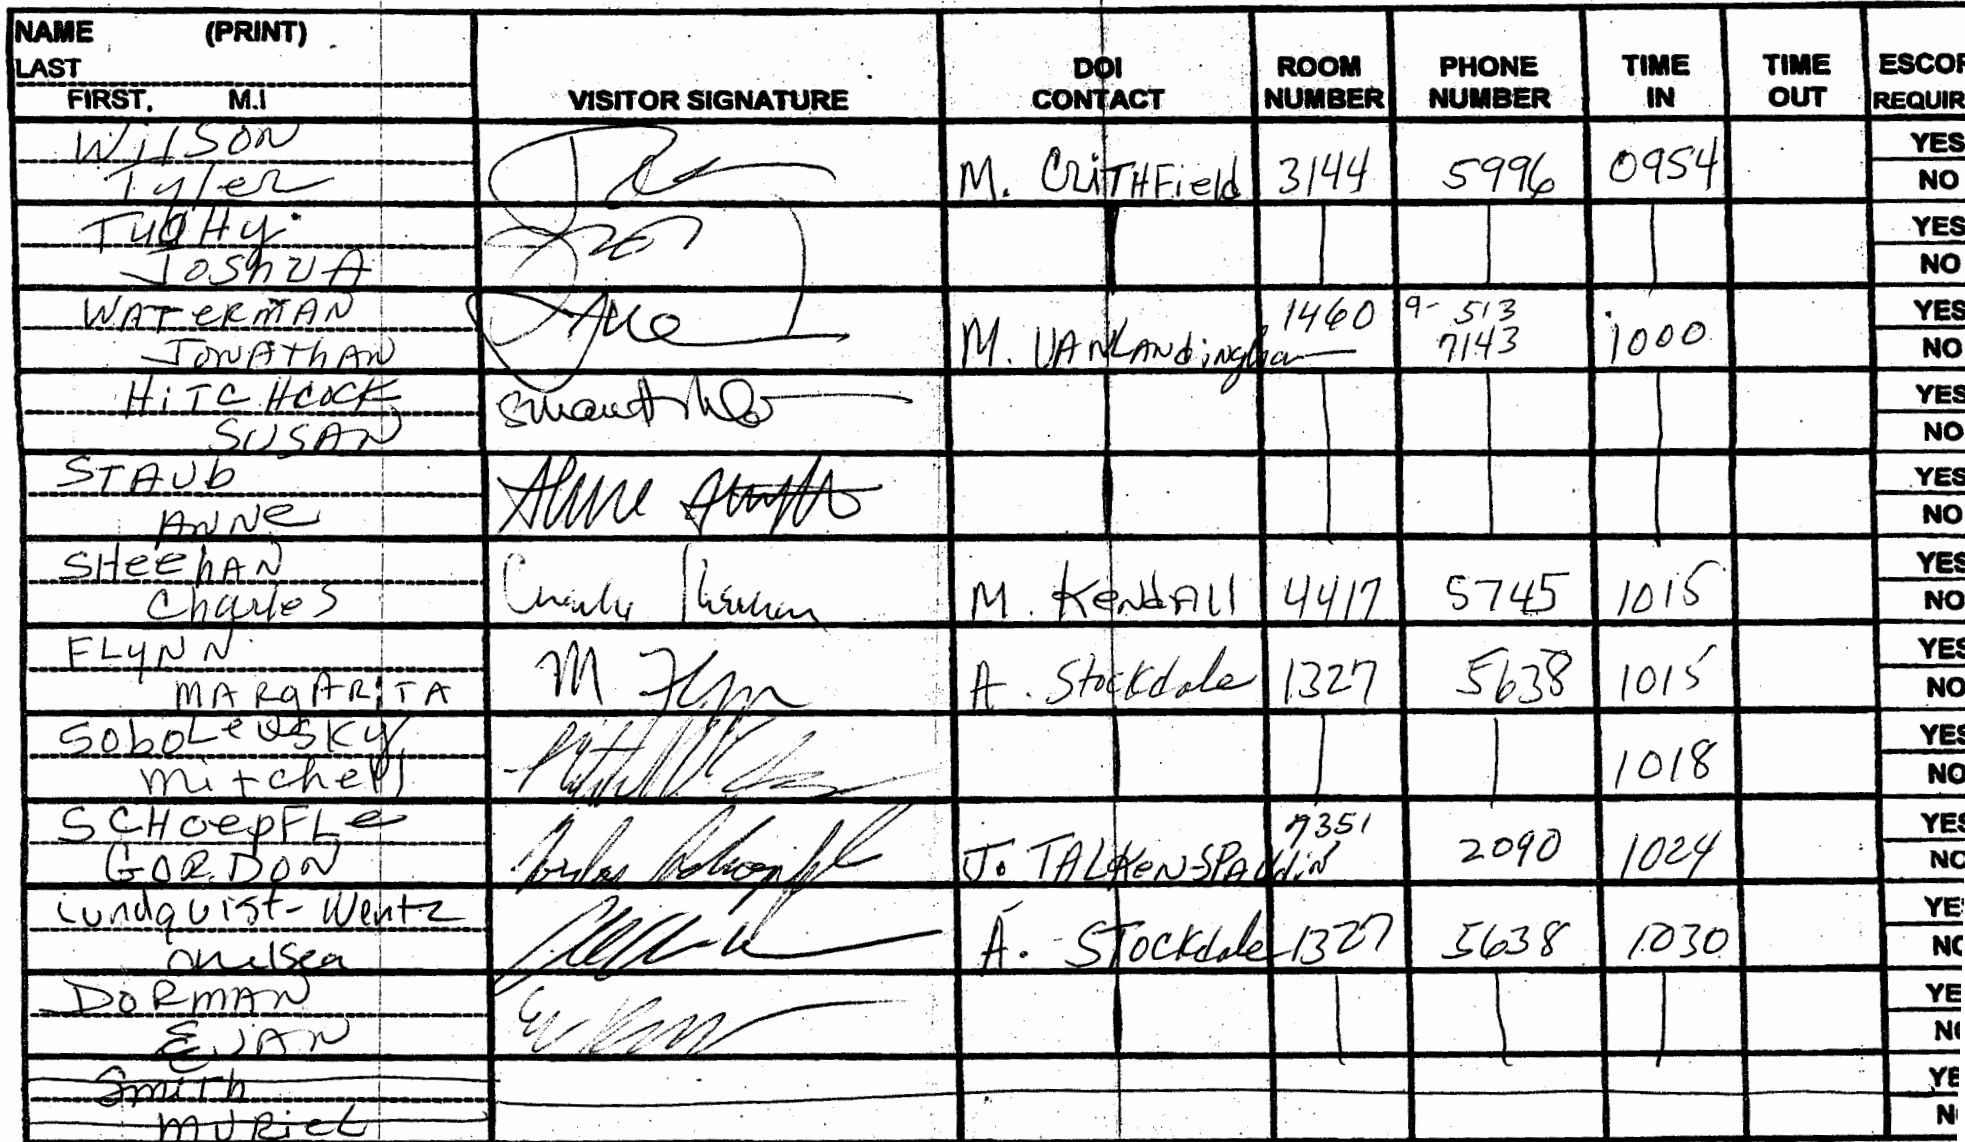 NAME (PRINT)
LAST
FIRST, M.I
VISITOR SIGNATURE
DOI CONTACT
ROOM NUMBER
PHONE NUMBER
TIME IN
TIME OUT
ESCOR
REQUIR
WilSON
Tyler
M. CRiTHField 3144 5996 0954
YES
NO
TuoHy
JoShUA
YES
NO
WATeRMAN
JONAThAN
M. VANLANdingham 1460 9-513 7143 1000
YES
NO
HiTCHcock
SUSAN
YES
NO
STAUb
ANNe
YES
NO
SHeehAN
Charles
M. KENdAll 4417 5745 1015
YES
NO
FLyNN
MARgARiTA
M Flynn
A. Stockdale 1327 5638 1015
YES
NO
SoboLevSKy
Mitchell
1018
YES
NO
SCHoepFLe
GORDON
J. TALKEN-SPAuldin 7351 2090 1024
YES
NO
Lundquist-Wentz
Chelsea
A. STockdale 1327 5638 1030
YE
NO
DORMAN
EVAN
YE
N
Smith
MURieL
YE
N